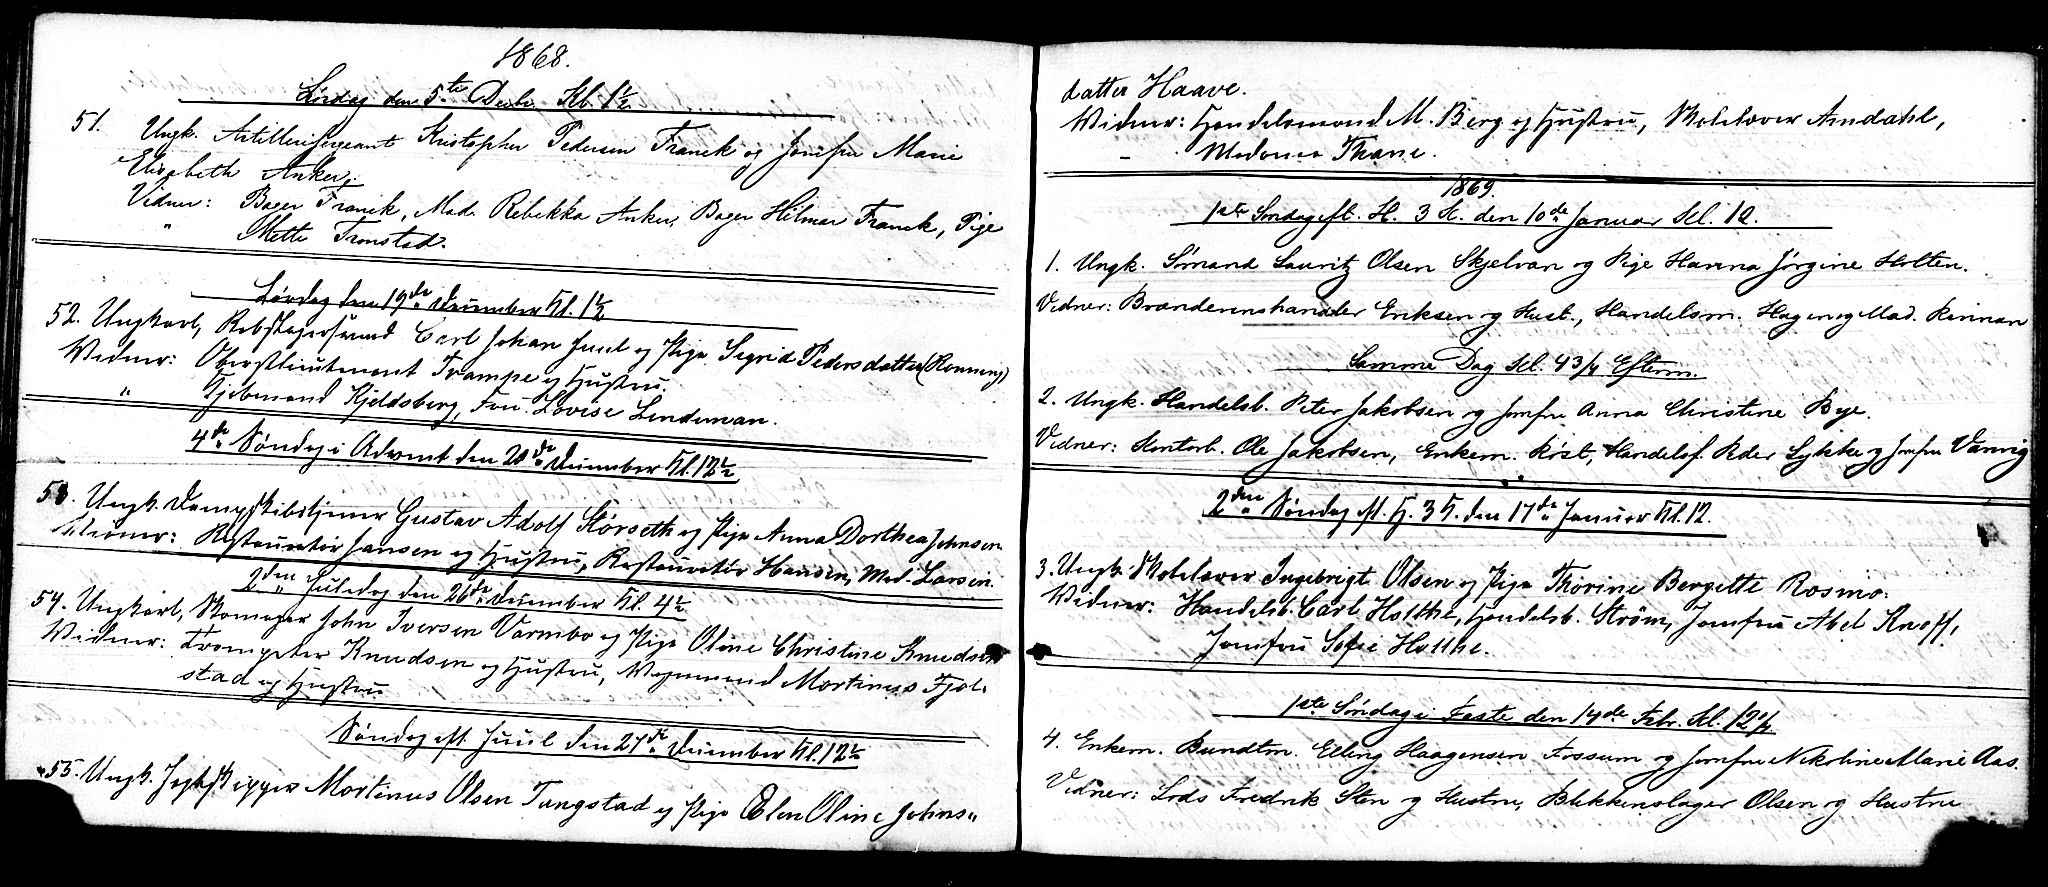 1868.
Lørdag den 5te Decbr. Kl. 1½
51. Ungk. Artillerisergeant Kristopher Pedersen Franck og Jomfru Marie
Elisabeth Anker.
Vidner: Bager Franck, Mad. Rebekka Anker, Bager Hilmar Franck, Pige
" Mette Tronstad.
Lørdag den 19de December Kl. 1½
52. Ungkarl, Rebslagersvend Carl Johan Juul og Pige Sigrid Pedersdatter (Rønning)
Vidner: Oberstlieutenant Trampe og Hustru.
" Kjøbmand Kjeldsberg, Fru Lovise Lindeman.
4de Søndag i Advent den 20de December Kl. 12½
53. Ungk. Dampskibstjener Gustav Adolf Størseth og Pige Anna Dorthea Johnsen
Vidner: Restauratør Jansen og Hustru, Restauratør Hansen, Mad. Larsen.
2den Juledag den 26de December Kl. 4½
54. Ungkarl, Skomager John Iversen Varmbo og Pige Oline Christine Knudsen
Vidner: Trompeter Knudsen og Hustru, Vognmand Martinus Fjøl-
stad og Hustru
Søndag eft. Juul den 27de December Kl. 12½
55. Ungk. Jægtskipper Martinus Olsen Tungstad og Pige Elen Oline Johns-
datter Haave.
Vidner: Handelsmand M. Berg og Hustru, Skolelærer Amdahl,
" Madame Thane.
1869.
1ste Søndag eft. H. 3 K. den 10de Januar Kl. 12.
1. Ungk. Sømand Lauritz Olsen Skjelvan og Pige Hanna Jørgine Holten.
Vidner: Brændevinshandler Eriksen og Hust., Handelsm. Hagen og Mad. Rinnan
Samme Dag Kl. 4 3/4 Efterm.
2. Ungk. Handelsb. Peter Jakobsen og Jomfru Anna Christine Bye.
Vidner: Kontorb. Ole Jakobsen, Enkem. Røst, Handelsf. Peder Lykke og Jomfru Vanvig
2den Søndag eft. H. 3 K. den 17de Januar Kl. 12.
3. Ungk. Skolelærer Ingebrigt Olsen og Pige Thorine Bergette Rosmo.
Vidner: Handelsb. Carl Holthe, Handelsb. Strøm, Jomfru Abel Knoff,
Jomfru Sofie Holthe.
1ste Søndag i Faste den 14de Febr. Kl. 12½
4. Enkem. Bundtm. Elling Haagensen Fossum og Jomfru Nikoline Marie Aas.
Vidner: Lods Fredrik Sten og Hustru, Blikkenslager Olsen og Hustru